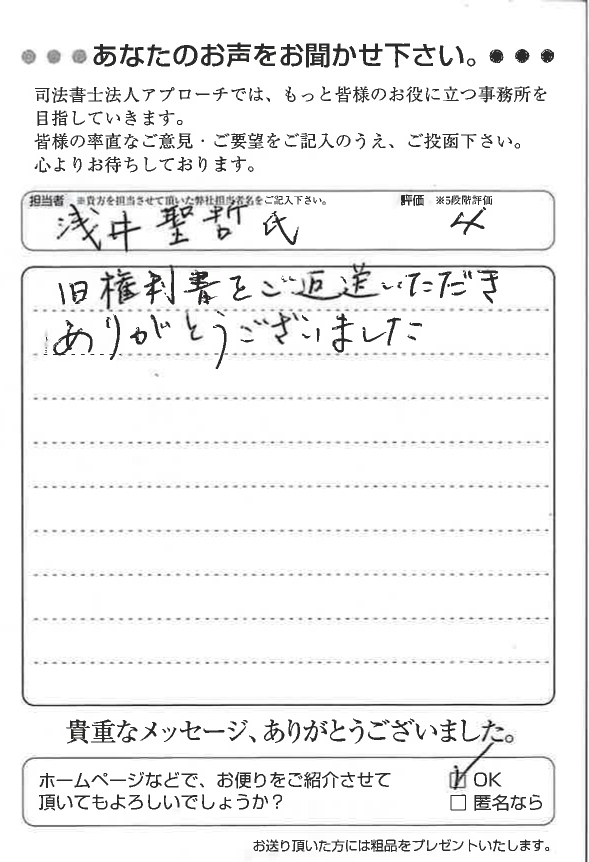 ●●●あなたのお声をお聞かせ下さい。●●●
司法書士法人アプローチでは、もっと皆様のお役に立つ事務所を
目指していきます。
皆様の率直なご意見・ご要望をご記入のうえ、ご投函下さい。
心よりお待ちしております。
担当者 ※貴方を担当させて頂いた弊社担当者名をご記入下さい。 評価 ※5段階評価
浅井聖哲氏 4
旧権利書をご返送いただき
ありがとうございました
貴重なメッセージ、ありがとうございました。
ホームページなどで、お便りをご紹介させて ☑ OK
頂いてもよろしいでしょうか？ □ 匿名なら
お送り頂いた方には粗品をプレゼントいたします。